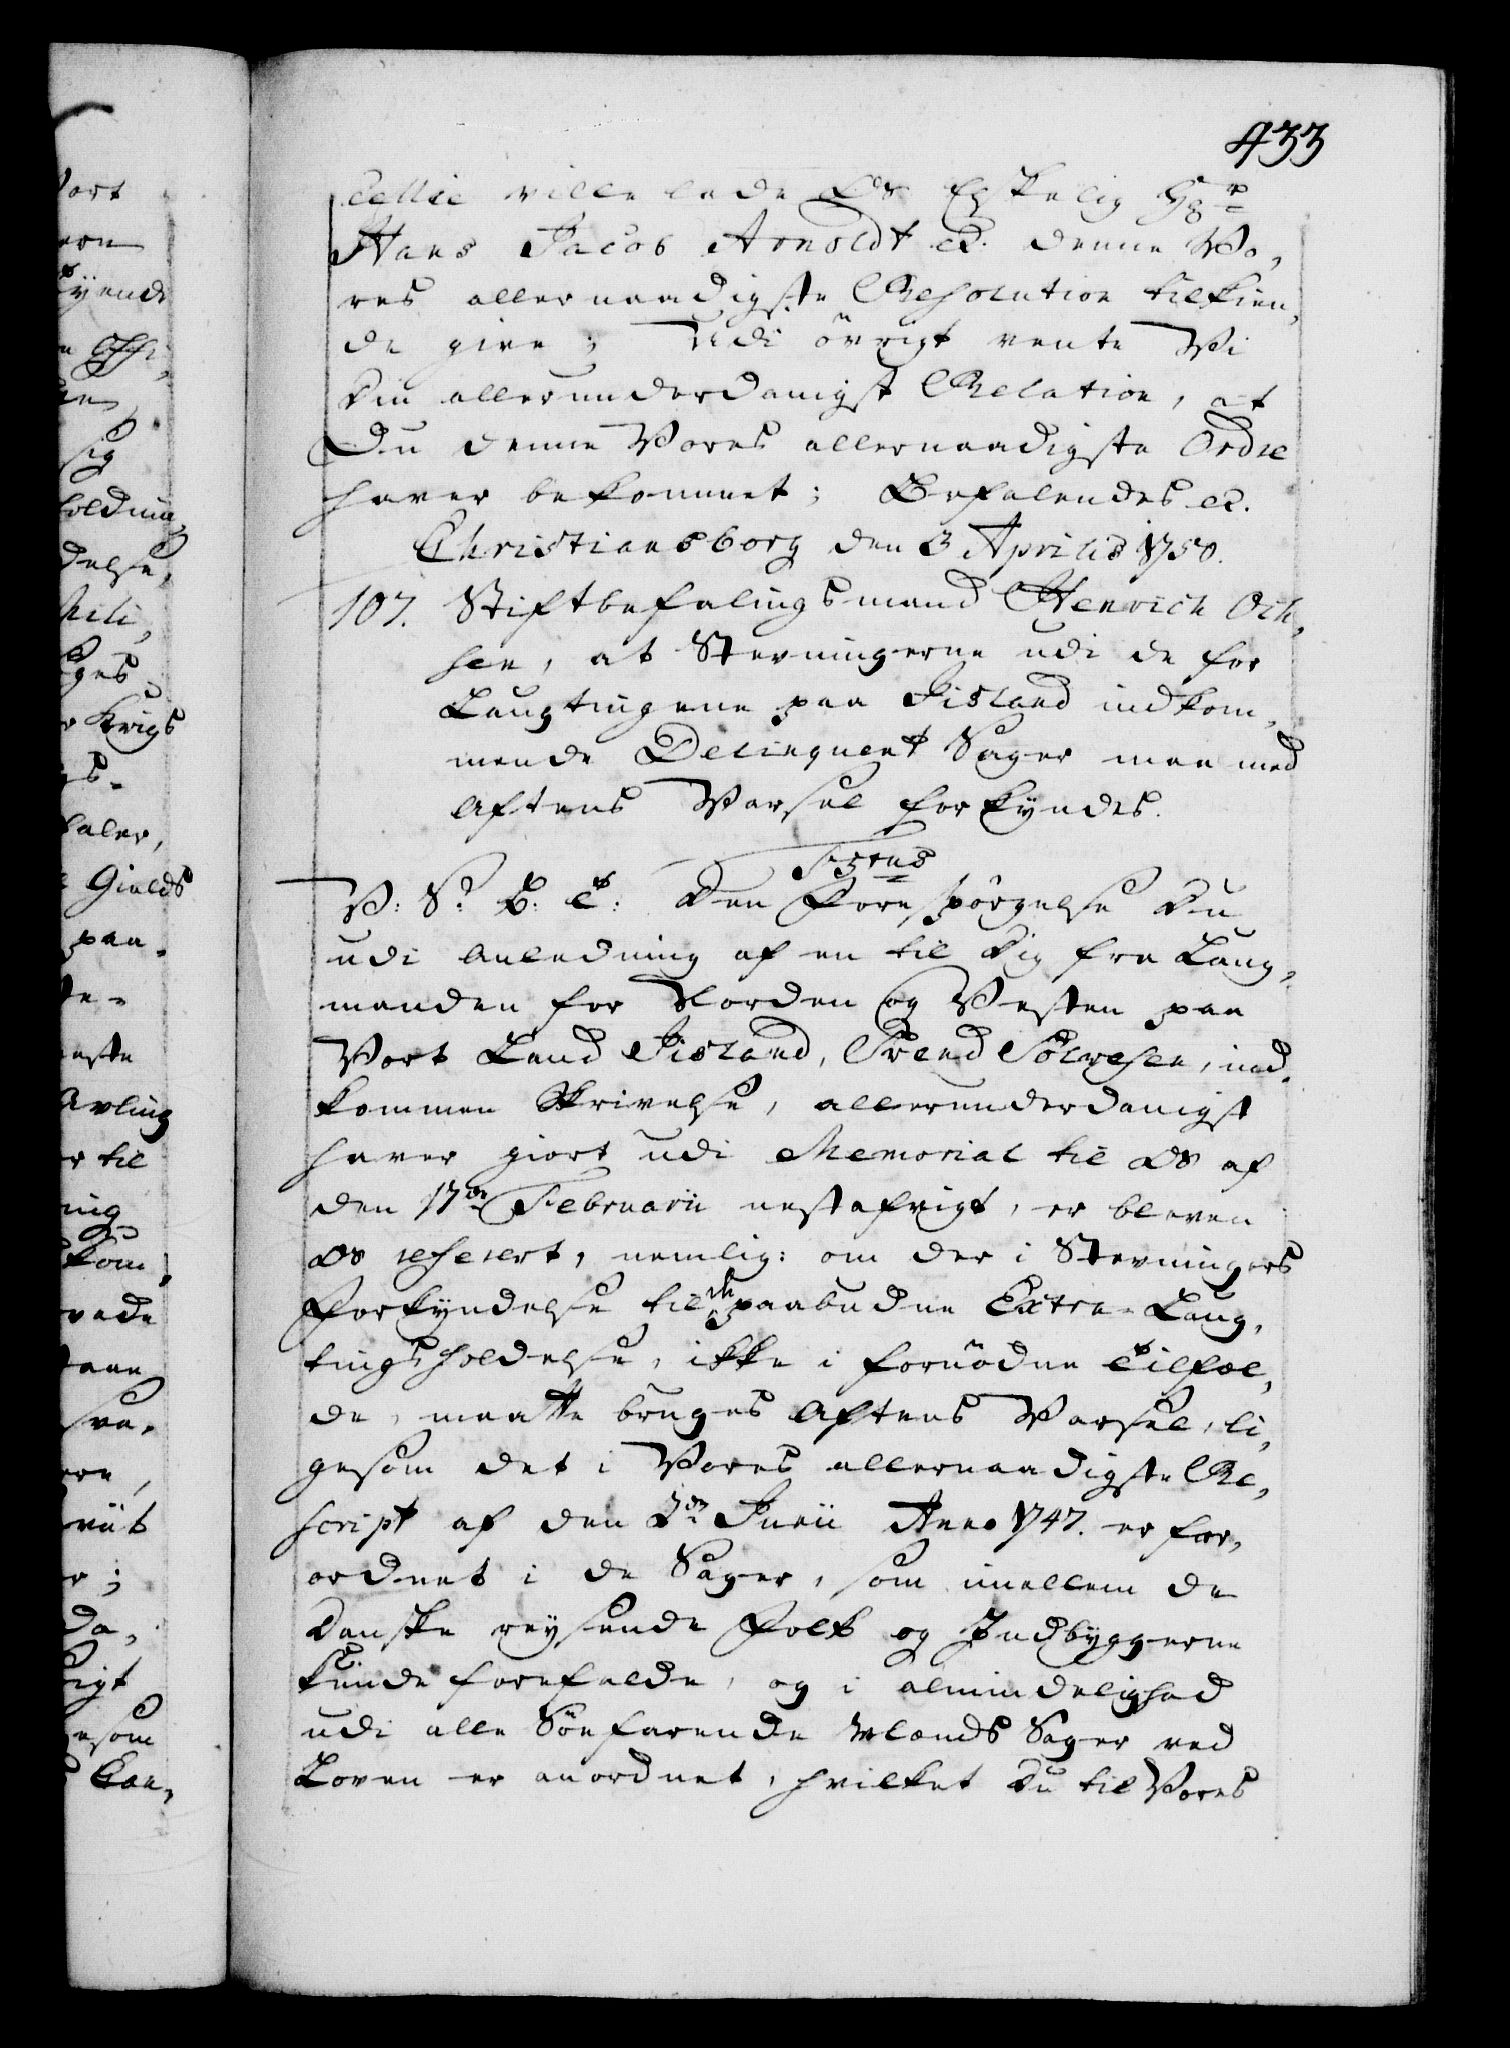 433
cellie ville lade Os Elskelig Hr
Hans Jacob Arnoldt &c. denne Vo,
res allernaadigste Resolution tilkien,
de give; Udi övrigt vente Vi
Din allerunderdanigst Relation, at
Du denne Vores allernaadigste Ordre
haver bekommet; Befalendes &c.
Christiansborg den 3 Aprilis 1750.
107. Stiftbefalingsmand Henrich Och,
sen, at Stevningerne udi de for
Laugtingene paa Iisland indkom,
mende Delinquent Sager maa med
Aftens Varsel forkyndes.
F. 5tus
V: S: B: T: Den Forespörgelse Du
udi Anledning af en til Dig fra Laug,
manden for Norden og Vesten paa
Vort Land Iisland, Svend Sölvesen, ind,
kommen Skrivelse, allerunderdanigst
haver giort udi Memorial til Os af
den 17de Februarii nestafvigt, er bleven
Os referert, nemlig: om der i Stevningers
Forkyndelse til de paabudne Extra-Laug,
tings holdelse, ikke i fornödne Tilfæl,
de, maatte bruges Aftens Varsel, li,
gesom det i Vores allernaadigste Re,
script af den 2den Junii Anno 1747. er for,
ordnet i de Sager, som imellem de
Danske reysende Folk og Indbyggerne
kunde forefalde, og i almindelighed
udi alle Söefarende Mænds Sager ved
Loven er anordnet, hvilket Du til Vores